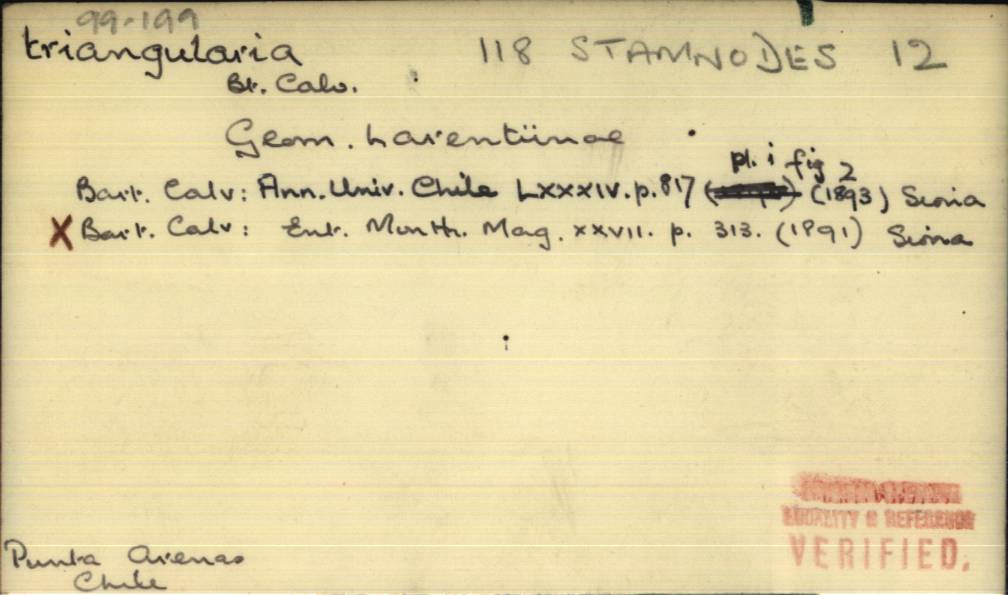 99-199
triangularia 118 STAMNODES 12
Bt. Calv.
Geom. Larentiinae
pl. i fig 2
Bart. Calv: Ann. Univ. Chile LXXXIV. p. 817 (1893) Siona
X Bart. Calv: Ent. Month. Mag. XXVII. p. 313. (1891) Siona
LOCALITY & REFERENCE
VERIFIED.
Punta Arenas
Chile